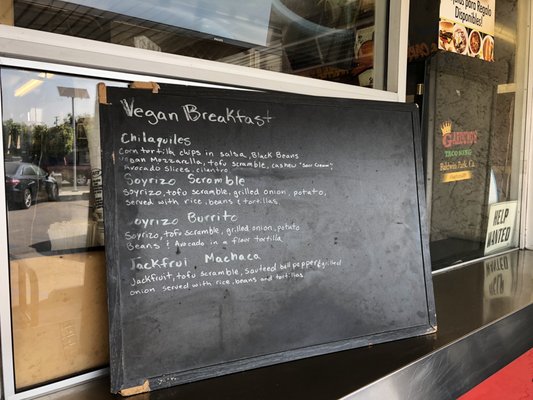 Vegan Breakfast
Chilaquiles
Corn tortilla chips in salsa, Black Beans
Vegan Mozzarella, tofu scramble, cashew "sour cream"
Avocado slices, cilantro
Soyrizo Scromble
Soyrizo, tofu scramble, grilled onion, potato,
Served with rice, beans & tortillas
Soyrizo Burrito
Soyrizo, tofu scramble, grilled onion, potato
Beans & Avocado in a flour tortilla
Jackfrui Machaca
Jackfruit, tofu scramble, Sauteed bell pepper & grilled
onion served with rice, beans and tortillas
para Regalo
Disponibles!
TACO KING
Baldwin Park, Ca.
HELP
WANTED